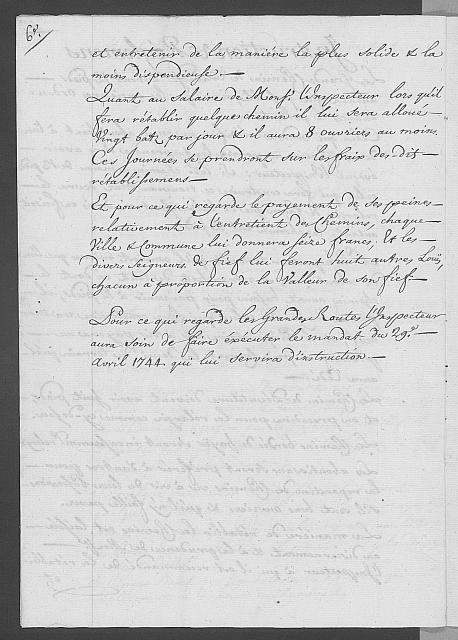 et entretenir de la maniére la plus solide & la
moins dispendieuse.—
Quant au Salaire de Monsr. l'Inspecteur lors qu'il
fera rétablir quelque chemin il lui sera alloué—
Vingt batz par jour & il aura 8 ouvriers au moins.
Ces Journées se prendront sur les fraix des dit—
rétablissemens—
Et pour ce qui regarde le payement de ses peines—
relativement à l'entretient des Chemins, chaque—
Ville & Commune lui donnera seize francs, Et les—
divers Seigneurs de fief lui feront huit autres
chacun à proportion de la Valleur de son fief.—
Pour ce qui regarde les Grandes Routes l'Inspecteur
aura soin de faire éxécuter le mandat du 29e.—
Avril 1744 qui lui servira d'instruction.—